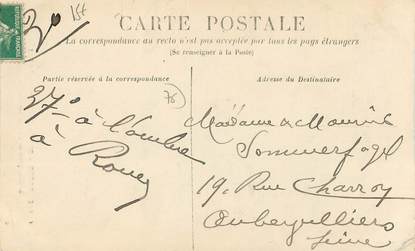 15€
CARTE POSTALE
La correspondance au recto n'est pas acceptée par tous les pays étrangers
(Se renseigner à la Poste)
Partie réservée à la correspondance
Adresse du Destinataire
76
37° à l'ombre
à Rouen
Madame Maurice
Sommerfogel
19, Rue Charroy
Aubervilliers
Seine